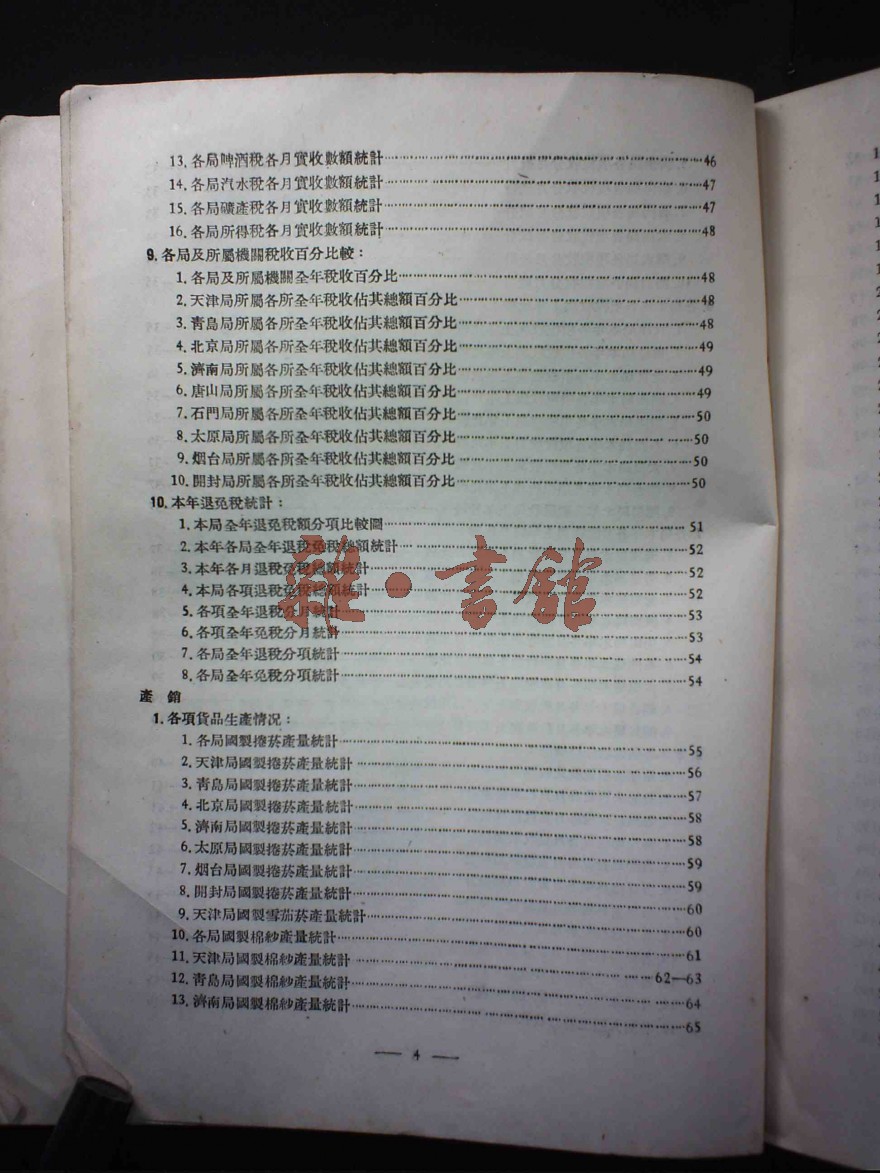 13. 各局啤酒稅各月實收數額統計……46
14. 各局汽水稅各月實收數額統計……47
15. 各局礦產稅各月實收數額統計……47
16. 各局所得稅各月實收數額統計……48
9. 各局及所屬機關稅收百分比較：
1. 各局及所屬機關全年稅收百分比……48
2. 天津局所屬各所全年稅收佔其總額百分比……48
3. 青島局所屬各所全年稅收佔其總額百分比……48
4. 北京局所屬各所全年稅收佔其總額百分比……49
5. 濟南局所屬各所全年稅收佔其總額百分比……49
6. 唐山局所屬各所全年稅收佔其總額百分比……49
7. 石門局所屬各所全年稅收佔其總額百分比……50
8. 太原局所屬各所全年稅收佔其總額百分比……50
9. 烟台局所屬各所全年稅收佔其總額百分比……50
10. 開封局所屬各所全年稅收佔其總額百分比……50
10. 本年退免稅統計：
1. 本局全年退免稅額分項比較圖……51
2. 本年各局全年退稅免稅總額統計……52
3. 本年各月退稅免稅總額統計……52
4. 本局各項退稅免稅總額統計……52
5. 各項全年退稅分月統計……53
6. 各項全年免稅分月統計……53
7. 各局全年退稅分項統計……54
8. 各局全年免稅分項統計……54
產 銷
1. 各項貨品生產情况：
1. 各局國製捲菸產量統計……55
2. 天津局國製捲菸產量統計……56
3. 青島局國製捲菸產量統計……57
4. 北京局國製捲菸產量統計……58
5. 濟南局國製捲菸產量統計……58
6. 太原局國製捲菸產量統計……59
7. 烟台局國製捲菸產量統計……59
8. 開封局國製捲菸產量統計……60
9. 天津局國製雪茄菸產量統計……60
10. 各局國製棉紗產量統計……61
11. 天津局國製棉紗產量統計……62—63
12. 青島局國製棉紗產量統計……64
13. 濟南局國製棉紗產量統計……65
— 4 —
雜·書館